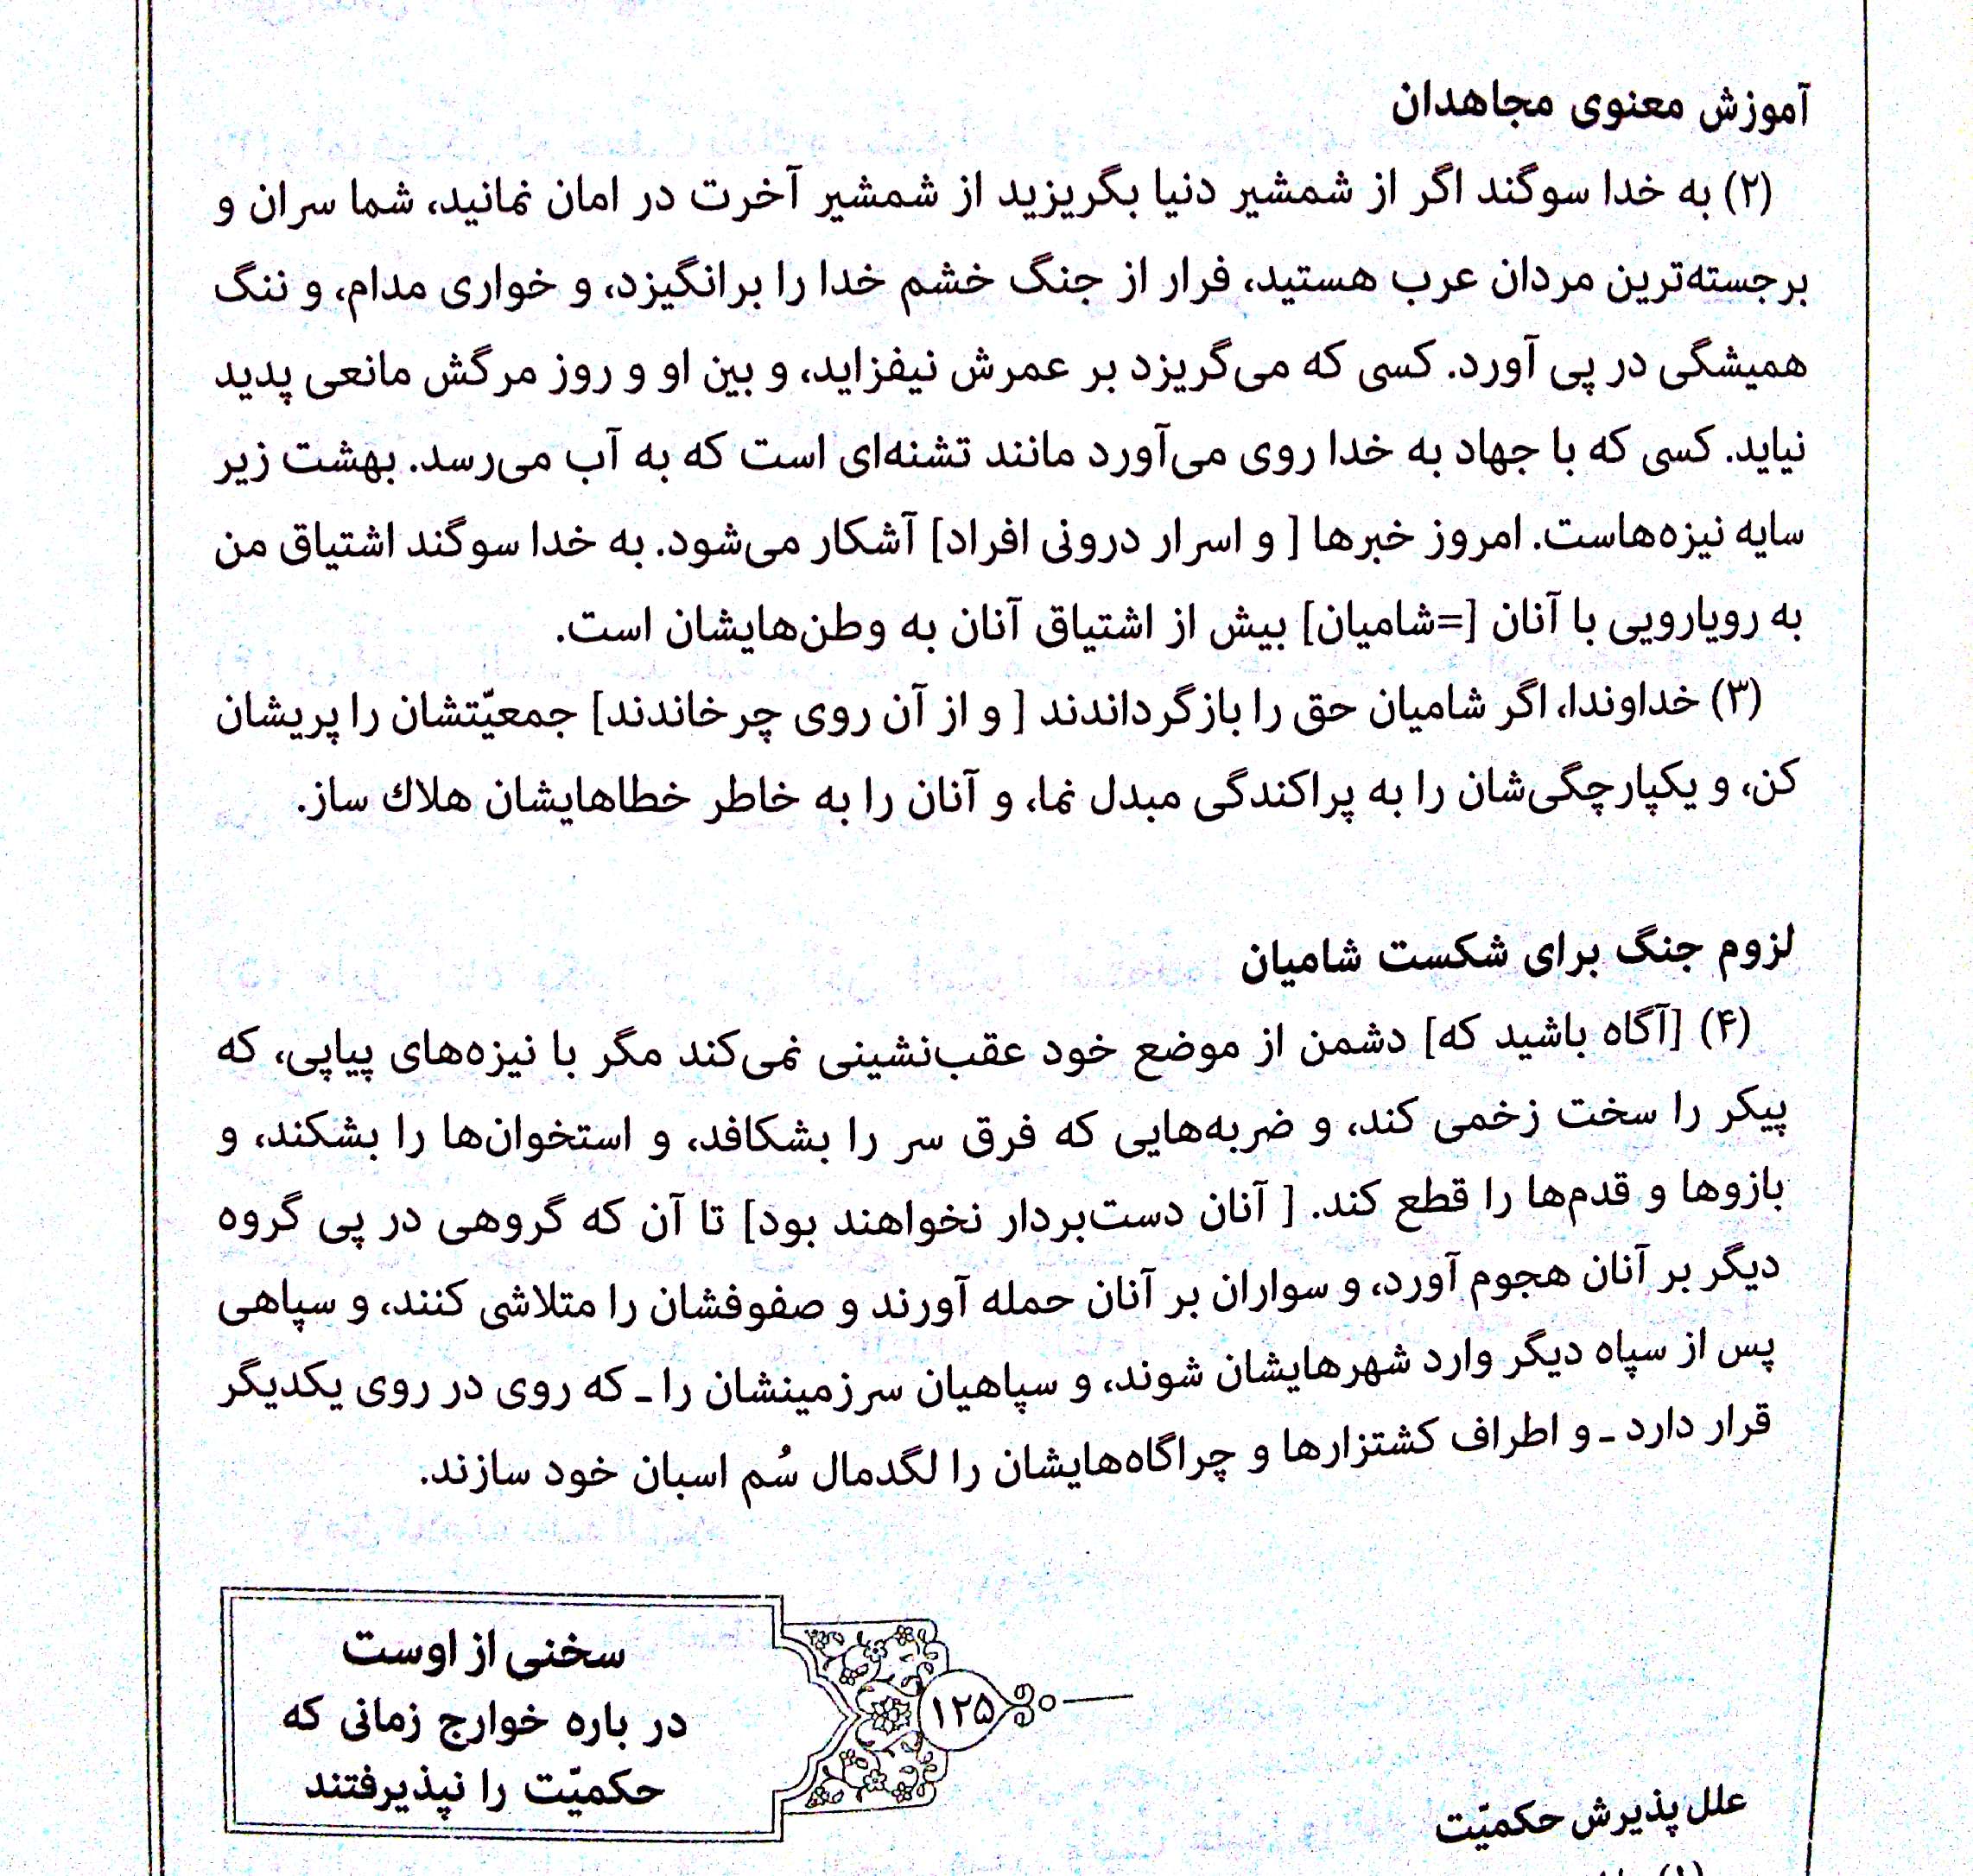 آموزش معنوی مجاهدان
(۲) به خدا سوگند اگر از شمشیر دنیا بگریزید از شمشیر آخرت در امان نمانید، شما سران و
برجسته‌ترین مردان عرب هستید، فرار از جنگ خشم خدا را برانگیزد، و خواری مدام، و ننگ
همیشگی در پی آورد. کسی که می‌گریزد بر عمرش نیفزاید، و بین او و روز مرگش مانعی پدید
نیاید. کسی که با جهاد به خدا روی می‌آورد مانند تشنه‌ای است که به آب می‌رسد. بهشت زیر
سایه نیزه‌هاست. امروز خبرها [ و اسرار درونی افراد] آشکار می‌شود. به خدا سوگند اشتیاق من
به رویارویی با آنان [=شامیان] بیش از اشتیاق آنان به وطن‌هایشان است.
(۳) خداوندا، اگر شامیان حق را بازگرداندند [ و از آن روی چرخاندند] جمعیّتشان را پریشان
کن، و یکپارچگی‌شان را به پراکندگی مبدل نما، و آنان را به خاطر خطاهایشان هلاك ساز.
لزوم جنگ برای شکست شامیان
(۴) [آگاه باشید که] دشمن از موضع خود عقب‌نشینی نمی‌کند مگر با نیزه‌های پیاپی، که
پیکر را سخت زخمی کند، و ضربه‌هایی که فرق سر را بشکافد، و استخوان‌ها را بشکند، و
بازوها و قدم‌ها را قطع کند. [ آنان دست‌بردار نخواهند بود] تا آن که گروهی در پی گروه
دیگر بر آنان هجوم آورد، و سواران بر آنان حمله آورند و صفوفشان را متلاشی کنند، و سپاهی
پس از سپاه دیگر وارد شهرهایشان شوند، و سپاهیان سرزمینشان را ـ که روی در روی یکدیگر
قرار دارد ـ و اطراف کشتزارها و چراگاه‌هایشان را لگدمال سُم اسبان خود سازند.
۱۲۵
سخنی از اوست
در باره خوارج زمانی که
حکمیّت را نپذیرفتند
علل پذیرش حکمیّت